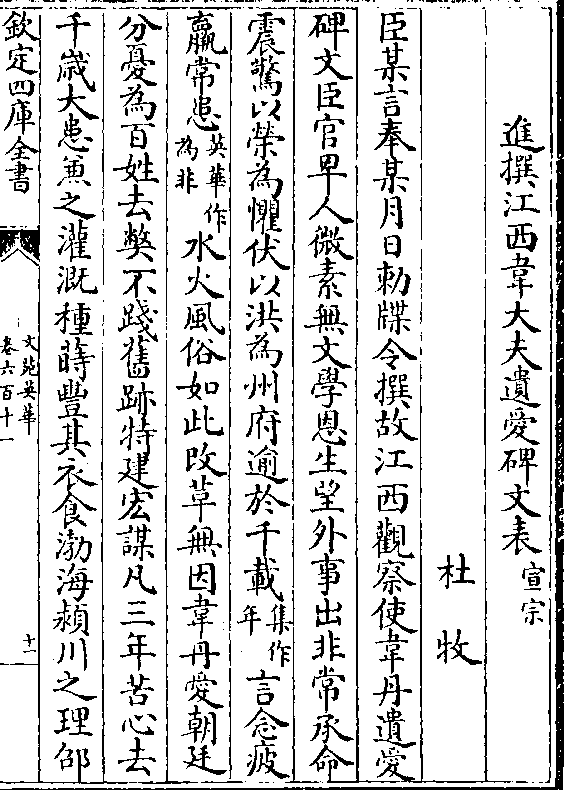 進撰江西韋大夫遺愛碑文表宣宗
杜牧
臣某言奉某月日勅牒令撰故江西觀察使韋丹遺愛
碑文臣官卑人微素無文學恩生望外事出非常承命
震驚以榮為懼伏以洪為州府逾於千載集作年言念疲
羸常患英華作為非水火風俗如此改革無因韋丹愛朝廷
分憂為百姓去弊不踐舊跡特建宏謀凡三年苦心去
千歲大患兼之灌溉種蒔豐其衣食渤海潁川之理邵
欽定四庫全書
文苑英華
卷六百十一
十一